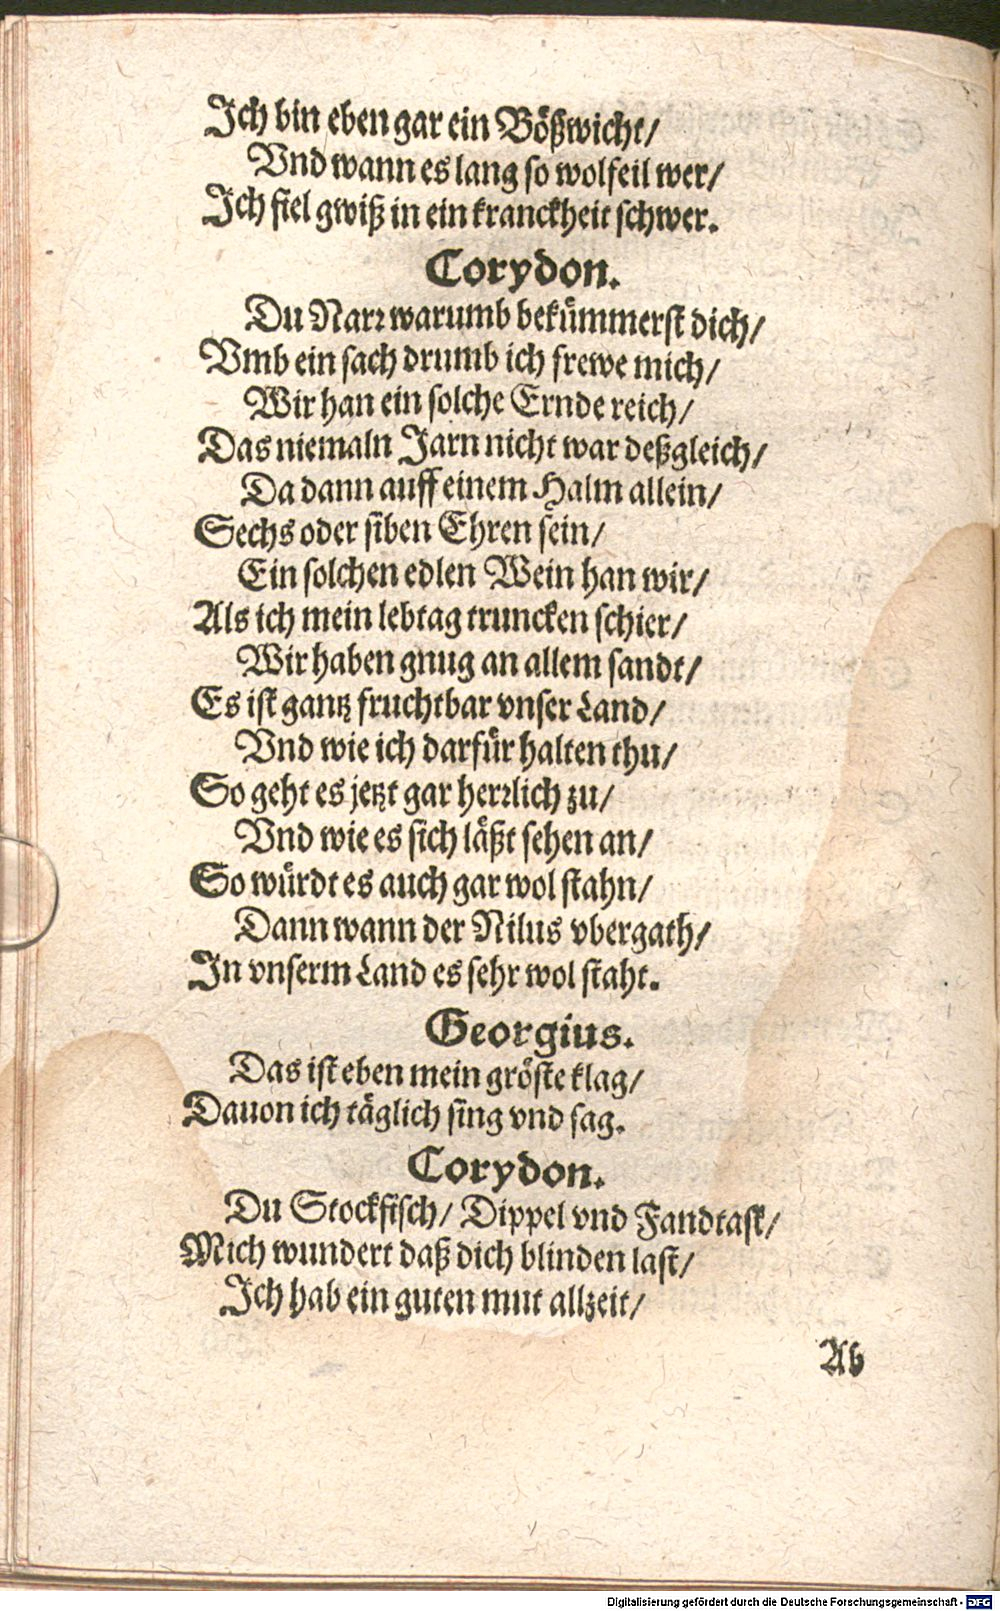 Ich bin eben gar ein Bößwicht/
Vnd wann es lang so wolfeil wer/
Ich fiel gwiß in ein kranckheit schwer.
Corydon.
Du Narr warumb bekümmerst dich/
Vmb ein sach drumb ich frewe mich/
Wir han ein solche Ernde reich/
Das niemaln Jarn nicht war deßgleich/
Da dann auff einem Halm allein/
Sechs oder siben Ehren sein/
Ein solchen edlen Wein han wir/
Als ich mein lebtag truncken schier/
Wir haben gnug an allem sandt/
Es ist gantz fruchtbar vnser Land/
Vnd wie ich darfür halten thu/
So geht es jetzt gar herrlich zu/
Vnd wie es sich läßt sehen an/
So würdt es auch gar wol stahn/
Dann wann der Nilus vbergath/
In vnserm Land es sehr wol staht.
Georgius.
Das ist eben mein gröste klag/
Dauon ich täglich sing vnd sag.
Corydon.
Du Stockfisch/ Dippel vnd Fandtast/
Mich wundert daß dich blinden last/
Ich hab ein guten mut allzeit/
Ab
Digitalisierung gefördert durch die Deutsche Forschungsgemeinschaft - DFG